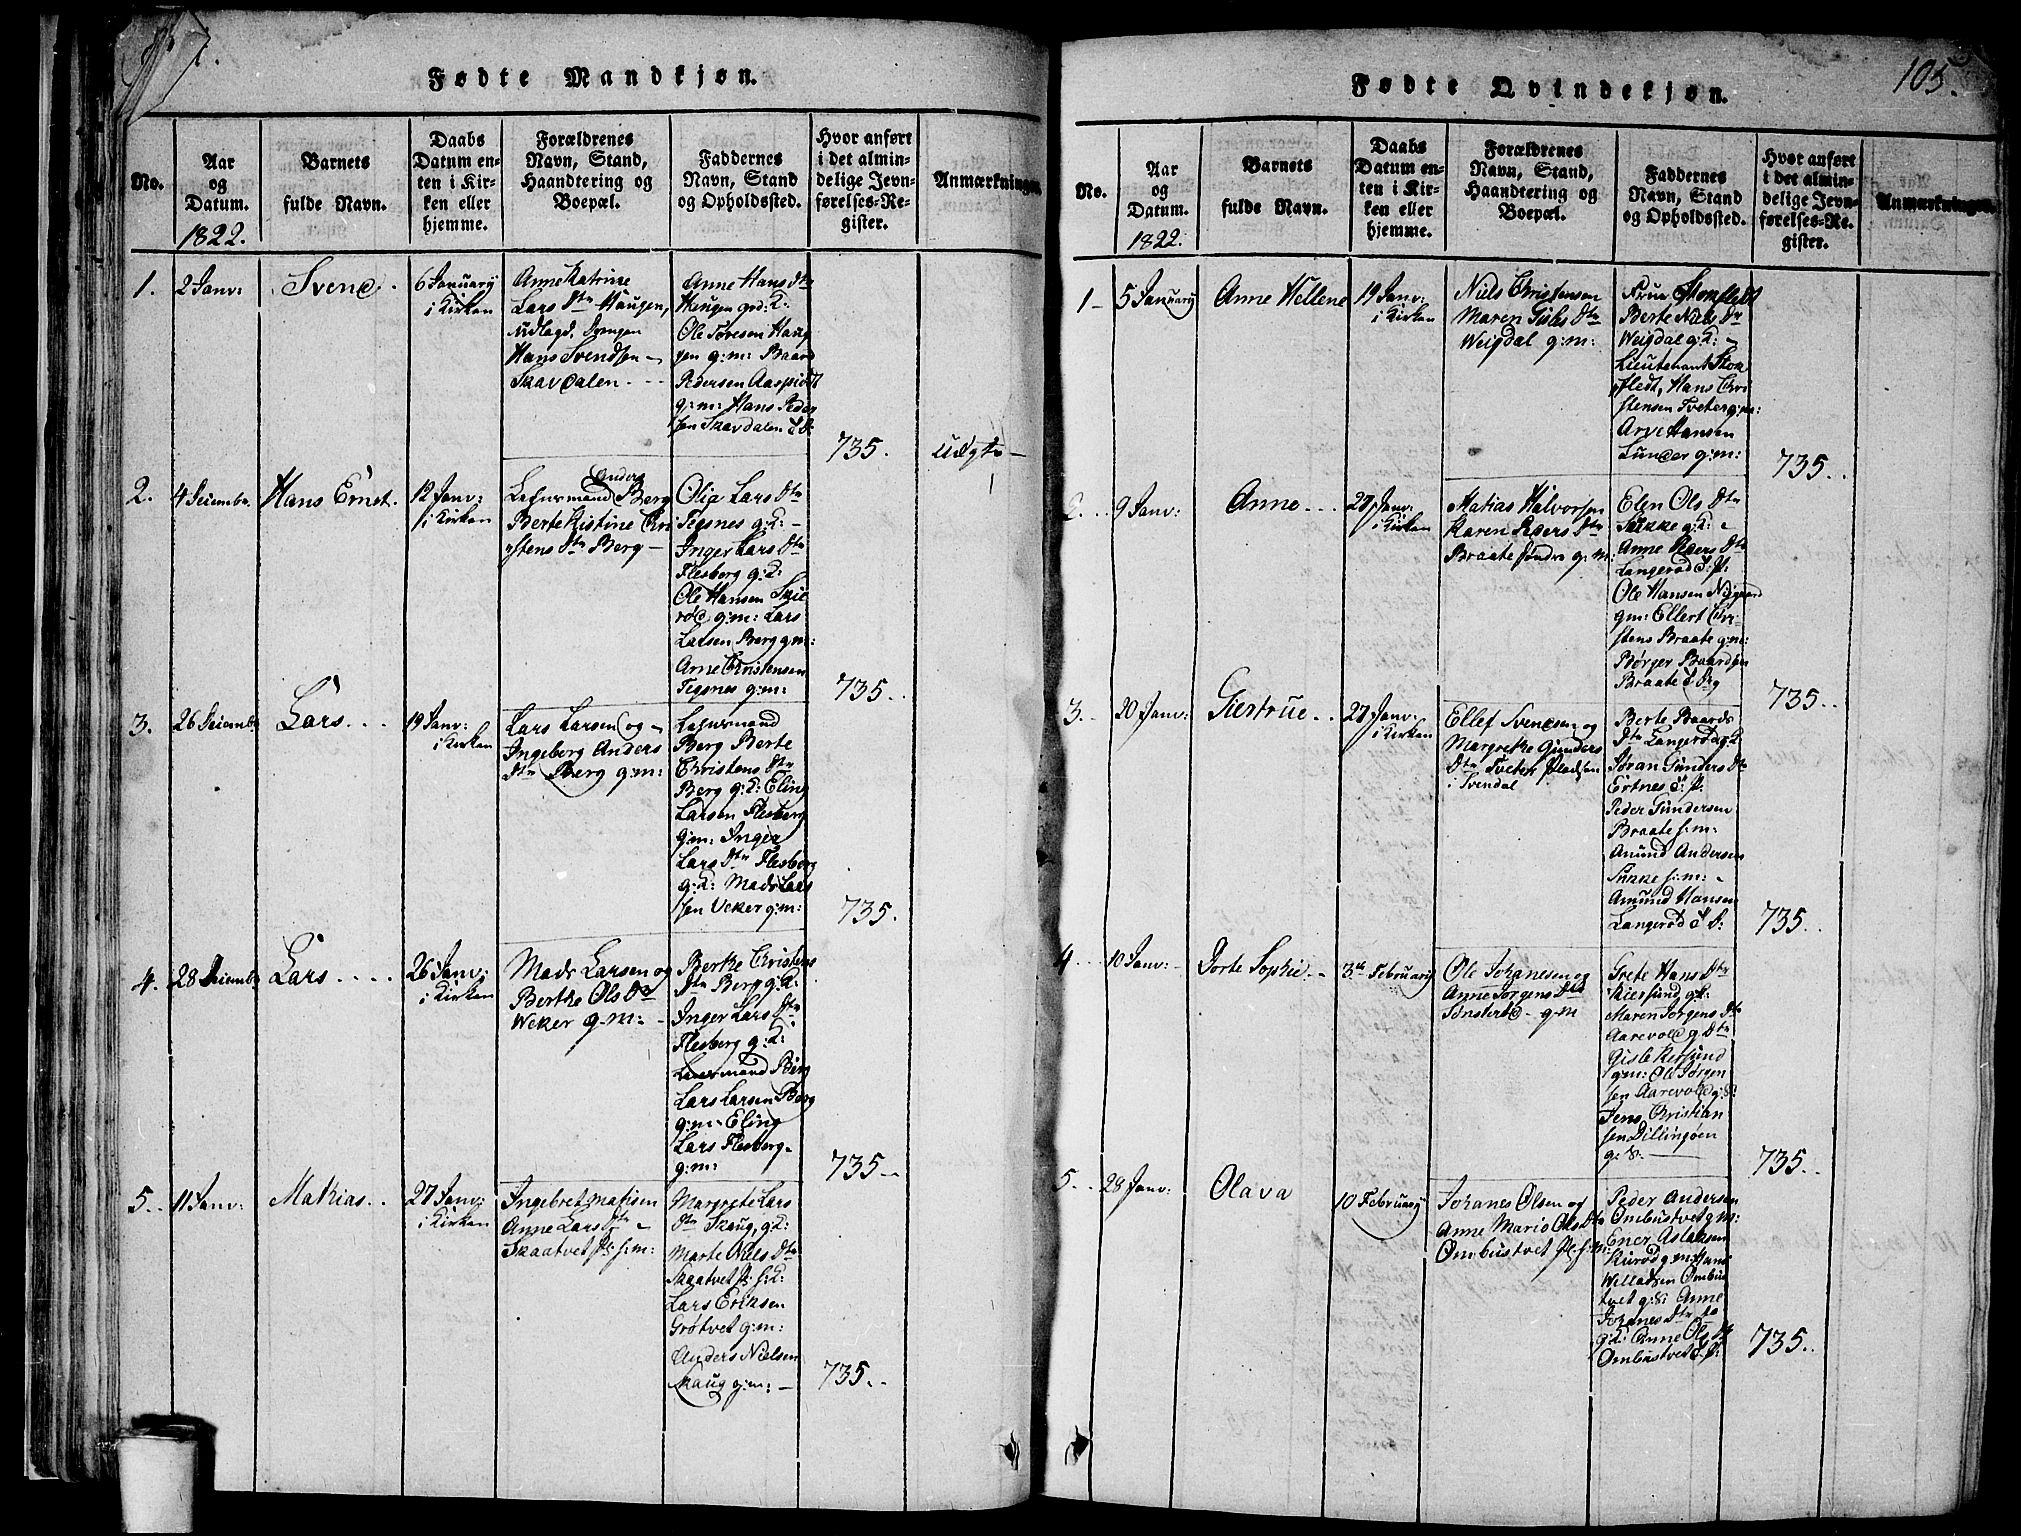 Fødte Mandkjøn.
No.
Aar
og
Datum.
1822.
Barnets
fulde Navn.
Daabs
Datum en-
ten i Kir-
ken eller
hjemme.
Forældrenes
Navn, Stand,
Haandtering og
Boepæl.
Faddernes
Navn, Stand
og Opholdssted.
Hvor anført
i det almin-
delige Jevn-
førelses-Re-
gister.
Anmærkninger.
1.
2 Janv:
Svend.
6 Januarÿ
i Kirken
Anne Katrine
Lars Dtr Haugen,
udlagd.
Hans Svendsen
Skavdalen
Anne Hans Dtr
Haugen
Ole Toresen Haug
sen g:m: Baard
Pedersen
g:m: Hans Peder
sen Skavdalen
735.
2.
4 Decembr.
Hans Ernst.
12 Janv:
i Kirken
Lehnsmand Anders Berg
Berte Kistine Chri
stens Dtr Berg
Olia Lars Dtr
Tegsnes g:K:
Inger Lars Dtr
Flesberg g:K:
Ole Hansen Skie
rød g:m: Lars
Larsen Berg g:m:
Arne Christensen
Tegsnes g:m:
735.
3.
26 Decembr
Lars
19 Janv:
i Kirken
Lars Larsen og
Ingeberg Anders
Dtr Berg g:m:
Lehnsmand
Berg Berte
Christens Dtr
Berg g:K: Eling
Larsen Flesberg
g:m: Inger
Lars Dtr Flesberg
g:K: Mads Lars
sen Veker g:m:
735.
4.
28 Decembr
Lars
26 Janv:
i Kirken
Mads Larsen og
Berthe Ols Dtr
Weker g:m:
Berthe Christens
Dtr Berg g:K:
Inger Lars Dtr
Flesberg g:K:
Lehnsmand Berg
Lars Larsen Berg
g:m: Eling
Lars Flesberg
g:m:
735.
5.
11 Janv:
Mathias
27 Janv:
i Kirken
Ingebret Matisen
Anne Lars Dtr
Skaatvet Pl: h:m:
Margrete Lars
Dtr Skaug, g:K:
Marte Niels Dtr
Skaatvet Pl: h:K:
Lars Eriksen
Grøtvet g:m:
Anders Nielsen
Skaug g:m:
735.
105.
Fødte Qvindekjøn.
No.
Aar
og
Datum.
1822.
Barnets
fulde Navn.
Daabs
Datum en-
ten i Kir-
ken eller
hjemme.
Forældrenes
Navn, Stand,
Haandtering og
Boepæl.
Faddernes
Navn, Stand
og Opholdssted.
Hvor anført
i det almin-
delige Jevn-
førelses-Re-
gister.
Anmærkninger.
1
5 Januarÿ
Anne Hellene
19 Janv:
i Kirken
Niels Christensen
Maren Gisles Dtr
Weigdal g:m:
Frue Stokfledt
Berte Niels Dtr
Weigdal g:K:
Lieutenant Stok
fledt, Hans Chri
stensen Tveter g:m:
Arve Hansen
Lunder g:m:
735.
2.
9 Janv:
Anne
27 Janv:
i Kirken
Matias Halvorsen
Karen Roers Dtr
Braate søndre g:m:
Elen Ols Dtr
Sukke g:K:
Anne Roers Dtr
Langerød
Ole Hansen Nÿgaard
g:m: Ellert Chri
stens Braate g:m:
Børger Baardsen
Braate
735.
3.
20 Janv:
Giertrue
27 Janv:
i Kirken
Ellef Svendsen og
Margrethe Gunders
Dtr Tveter Pladsen
i Svendal
Berte Baards
Dtr Langerød g:K:
Joran Gunders Dtr
Ertnes
Peder Gundersen
Braate h:m:
Amund Andersen
Sukke h:m:
Amund Hansen
Langerød
735.
4.
10 Janv:
Dorte Sophie
3de Februarÿ
Ole Johanesen og
Anne Jorgens Dtr
Tønsterød g:m
Grete Hans Dtr
Kiersund g:K:
Maren Jorgens Dtr
Aarevold g. Dtr
Gisle Kersund
g:m: Ole Jørgen
sen Aarevold g:S:
Jens Christian
sen Dillingøen
g:S:
735.
5.
28 Janv:
Olava
10 Februarÿ
Johanes Olsen og
Anne Marie Ols Dtr
Ombustvet Pl: h:m:
Peder Andersen
Ombustvet g:m:
Ener Aslaksen
Kurød g:m: Hans
Willadsen Ombus
tvet g:S: Anne
Johanes Dtr
g:K: Anne Ols Dtr
Ombustvet
735.